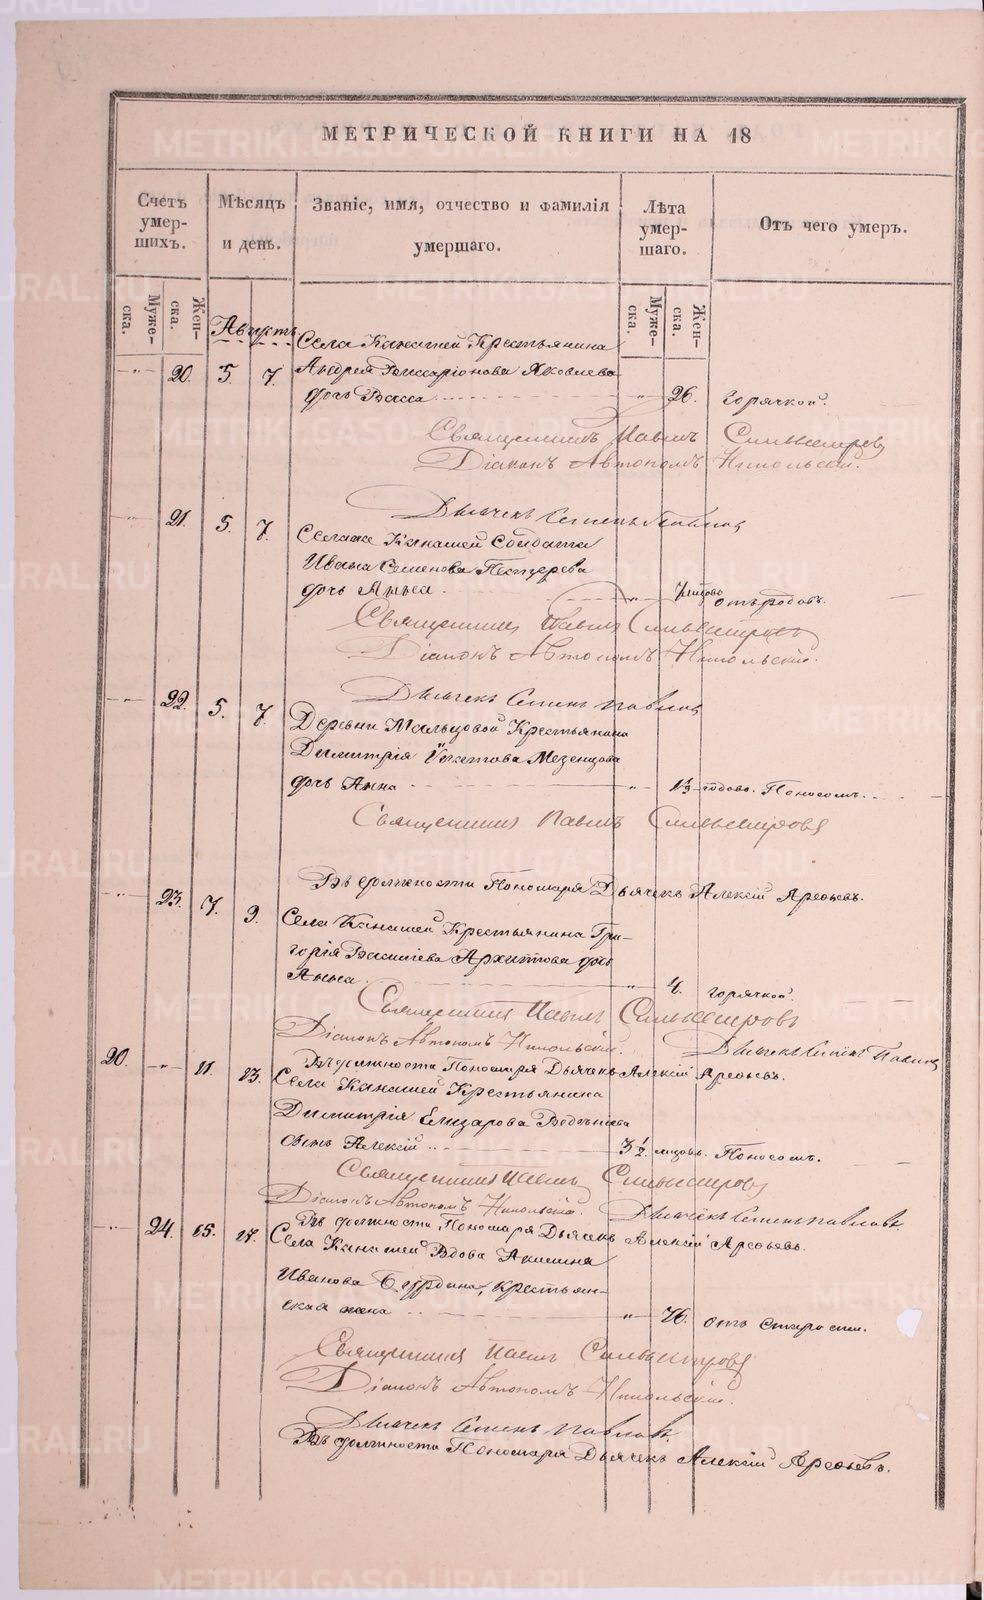 МЕТРИЧЕСКОЙ КНИГИ НА 18
Счетъ умер-шихъ.
Мѣсяцъ и день.
Званіе, имя, отчество и фамилія умершаго.
Лѣта умер-шаго.
Отъ чего умеръ.
Муже-ска.
Жен-ска.
Муже-ска.
Жен-ска.
Августъ
Села Канашей Крестьянина
20. 5. 7. Андрея Виссаріонова Яковлева
дочь Васса 26. Горячкой.
Священникъ Павелъ Сильвестровъ
Діаконъ Автономъ Никольскій.
Дьячекъ Степенъ Павловъ
21. 5. 7. Села Канашей Солдата
Ивана Семенова
дочь Анна отъ родовъ.
Священникъ Павелъ Сильвестровъ
Діаконъ Автономъ Никольскій.
Дьячекъ Степенъ Павловъ
22. 5. 7. Деревни Мальцовой Крестьянина
Димитрія Мезенцова
дочь Анна годово. Поносомъ.
Священникъ Павелъ Сильвестровъ
Въ должности Пономаря Дьячекъ Алексій Арефьевъ.
23. 7. 9. Села Канашей Крестьянина Гри-
горія Васильева Архипова дочь
Анна 4. горячкой.
Священникъ Павелъ Сильвестровъ
Діаконъ Автономъ Никольскій. Дьячекъ Степенъ Павловъ
Въ должности Пономаря Дьячекъ Алексій Арефьевъ.
20. 11. 13. Села Канашей Крестьянина
Димитрія Елизарова
сынъ Алексій 3 1/2 мѣсяцъ. Поносомъ.
Священникъ Павелъ Сильвестровъ
Діаконъ Автономъ Никольскій. Дьячекъ Степенъ Павловъ.
Въ должности Пономаря Дьячекъ Алексій Арефьевъ.
24. 15. 17. Села Канашей Вдова Акилина
Иванова Бурдина, крестьян-
ская жена 76. отъ старости.
Священникъ Павелъ Сильвестровъ
Діаконъ Автономъ Никольскій.
Дьячекъ Степенъ Павловъ.
Въ должности Пономаря Дьячекъ Алексій Арефьевъ.
METRIKI.GASO-URAL.RU